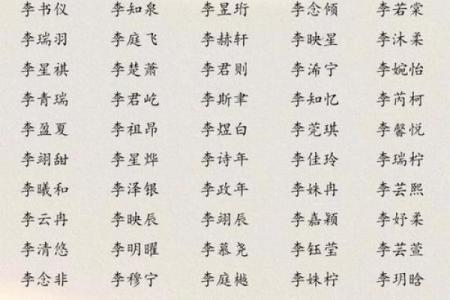 李书仪 李知泉 李昱珩 李念倾 李若棠
李瑞羽 李庭飞 李赫轩 李映星 李沐柔
李星祺 李楚萧 李君则 李浠宁 李婉怡
李青瑞 李君屹 李斯聿 李知忆 李芮柯
李盈夏 李祖昂 李煜白 李莞琪 李馨悦
李翊甜 李星烨 李诗年 李佳玲 李瑞柠
李曦和 李泽银 李政年 李姝冉 李芸熙
李云冉 李映辰 李翊辰 李嘉颖 李妤柔
李清悠 李明曜 李慕尧 李钰莹 李芸萱
李念非 李穆宁 李庭樾 李姝柠 李玥晗